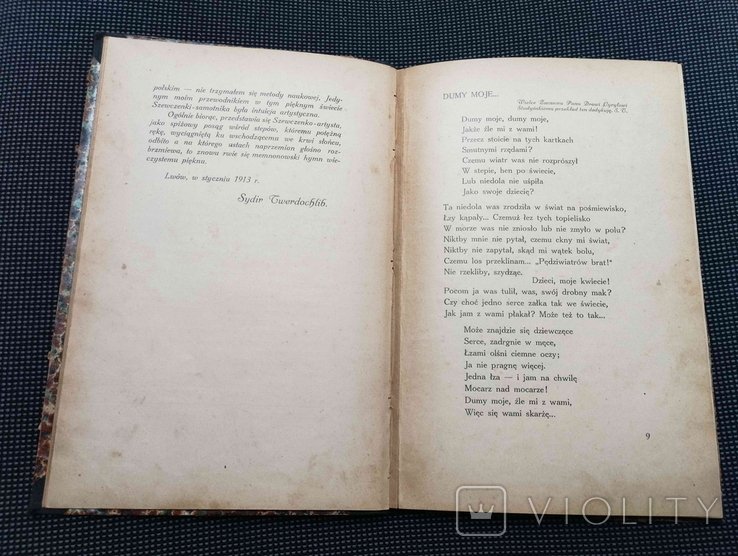 polskim — nie trzymałem się metody naukowej. Jedy-
nym moim przewodnikiem w tym pięknym świecie
Szewczenki-samotnika była intuicja artystyczna.
Ogólnie biorąc, przedstawia się Szewczenko-artysta,
jako spiżowy posąg wśród stepów, któremu potężną
rękę, wyciągniętą ku wschodzącemu we krwi słońcu,
odbito a na którego ustach naprzemian głośno roz-
brzmiewa, to znowu rwie się memnonowski hymn wie-
czystemu pięknu.
Lwów, w styczniu 1913 r.
Sydir Twerdochlib.
DUMY MOJE...
Wielce Zacnemu Panu Drowi Cyrylowi
Studyńskiemu przekład ten dedykuję. S. T.
Dumy moje, dumy moje,
Jakże źle mi z wami!
Przecz stoicie na tych kartkach
Smutnymi rzędami?
Czemu wiatr was nie rozprószył
W stepie, hen po świecie,
Lub niedola nie uśpiła
Jako swoje dziecię?
Ta niedola was zrodziła w świat na pośmiewisko,
Łzy kąpały... Czemuż łez tych topielisko
W morze was nie zniosło lub nie zmyło w polu?
Niktby mnie nie pytał, czemu ckny mi świat,
Niktby nie zapytał, skąd mi wątek bolu,
Czemu los przeklinam... „Pędziwiatrów brat!"
Nie rzekliby, szydząc.
Dzieci, moje kwiecie!
Pocom ja was tulił, was, swój drobny mak?
Czy choć jedno serce załka tak we świecie,
Jak jam z wami płakał? Może też to tak...
Może znajdzie się dziewczęce
Serce, zadrgnie w męce,
Łzami olśni ciemne oczy;
Ja nie pragnę więcej.
Jedna łza — i jam na chwilę
Mocarz nad mocarze!
Dumy moje, źle mi z wami,
Więc się wami skarżę...
9
VIOLITY